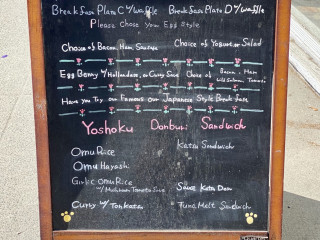 Breakfast Plate C w/waffle Breakfast Plate D w/waffle
Please Chose your Egg Style
Choice of Bacon, Ham, Sausage Choice of Yogurt or Salad
Egg Benny w/ Hollandaise, or Curry Sauce Choice of Bacon, Ham
Wild Salmon, Tomato
Have you Try our Famous our Japanese Style Breakfast
Yoshoku Donburi Sandwich
Omu Rice Katsu Sandwich
Omu Hayashi
Garlic Omu Rice
w/ Mushroom Tomato Sauce Sauce Katsu Don
Curry w/ Tonkatsu Tuna Melt Sandwich